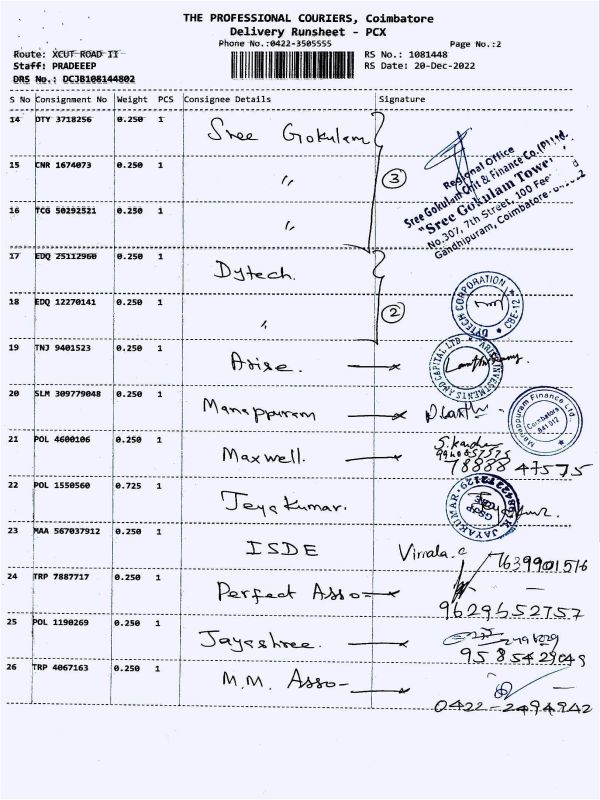 THE PROFESSIONAL COURIERS, Coimbatore
Delivery Runsheet - PCX
Phone No.:0422-3505555 Page No.:2
Route: XCUT ROAD II RS No.: 1081448
Staff: PRADEEEP RS Date: 20-Dec-2022
DRS No.: DCJB108144802
S No Consignment No Weight PCS Consignee Details Signature
14 DTY 3718256 0.250 1 Sree Gokulam
15 CNR 1674073 0.250 1 〃 3
16 TCG 50292521 0.250 1 〃
Regional Office
Sree Gokulam Chit & Finance Co.(P) Ltd.
"Sree Gokulam Tower"
No.307, 7th Street, 100 Feet
Gandhipuram, Coimbatore-
17 EDQ 25112960 0.250 1 Dytech.
18 EDQ 12270141 0.250 1 〃 2
DYTECH CORPORATION ★ CBE-12 ★
19 TNJ 9401523 0.250 1 Arise.
ARISE INVESTMENTS AND CAPITAL LTD. ★
20 SLM 309779048 0.250 1 Manappuram
Manappuram Finance Ltd. ★
Coimbatore
641 012
21 POL 4600106 0.250 1 Maxwell.
78888 47575
22 POL 1550560 0.725 1 Jeya Kumar.
JAYAKUMAR
23 MAA 567037912 0.250 1 ISDE
7639901516
24 TRP 7887717 0.250 1 Perfect Asso
9629652757
25 POL 1190269 0.250 1 Jayashree.
9585429049
26 TRP 4067163 0.250 1 M.M. Asso-
0422-2494942